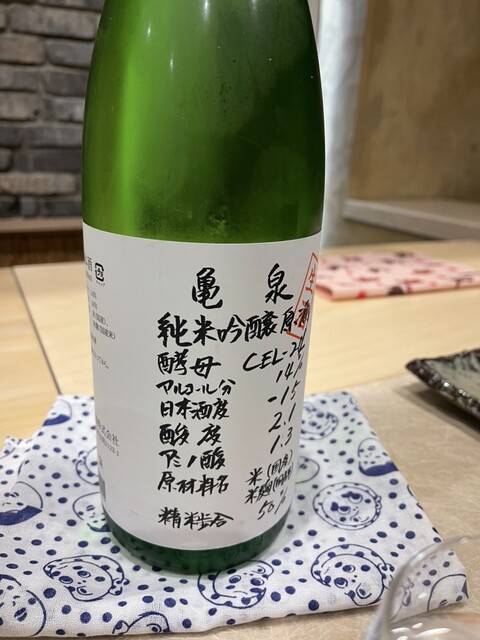 亀泉
純米吟醸原酒
酵母 CEL-24
アルコール分 14%
日本酒度 -15
酸度 2.1
アミノ酸 1.3
原材料名 米(国産)
米麹(国産米)
精米歩合 50%
生
株式会社